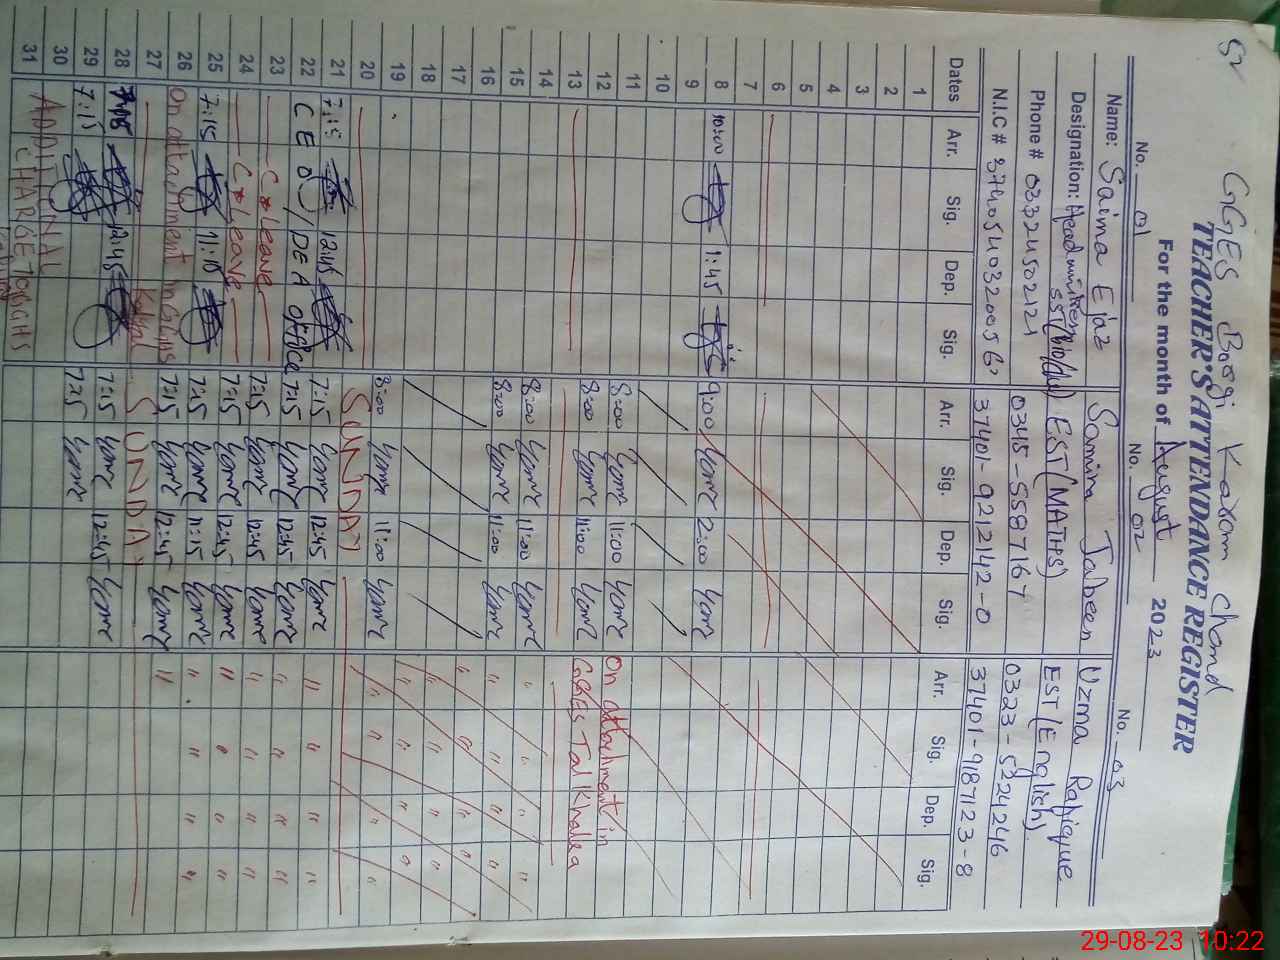 52
GGES Boogi Karam Chand
TEACHER'S ATTENDANCE REGISTER
For the month of August 2023
No. 01 No. 02 No. 03
Name: Saima Ejaz Samina Jabeen Uzma Rafique
Designation: Headmistress EST(MATHS) EST(English)
Phone # 03324502121 0345-5587167 0323-5224246
N.I.C # 37401-9212142-0 37401-9187123-8
Dates Arr. Sig. Dep. Sig. Arr. Sig. Dep. Sig. Arr. Sig. Dep. Sig.
1
2
3
4
5
6
7
8 10:00 1:45 9:00 2:00
9
10
11 8:00 11:00
12 8:00 11:00 On attachment in
13 GGES Tal Khalsa
14
15 8:00 11:00
16 8:00 11:00
17
18
19
20 8:00 11:00
21 7:15 12:45 SUNDAY
22 CEO/DEA Office 7:15 12:45
23 C Leave 7:15 12:45
24 C Leave 7:15 12:45
25 7:15 11:15 7:15 12:45
26 On attachment in GGHS 7:15 11:15
27 7:15 12:45
28 7:15 12:45 SUNDAY
29 7:15 7:15 12:45
30 7:15
31 ADDITIONAL
CHARGE TO GGHS
29-08-23 10:22